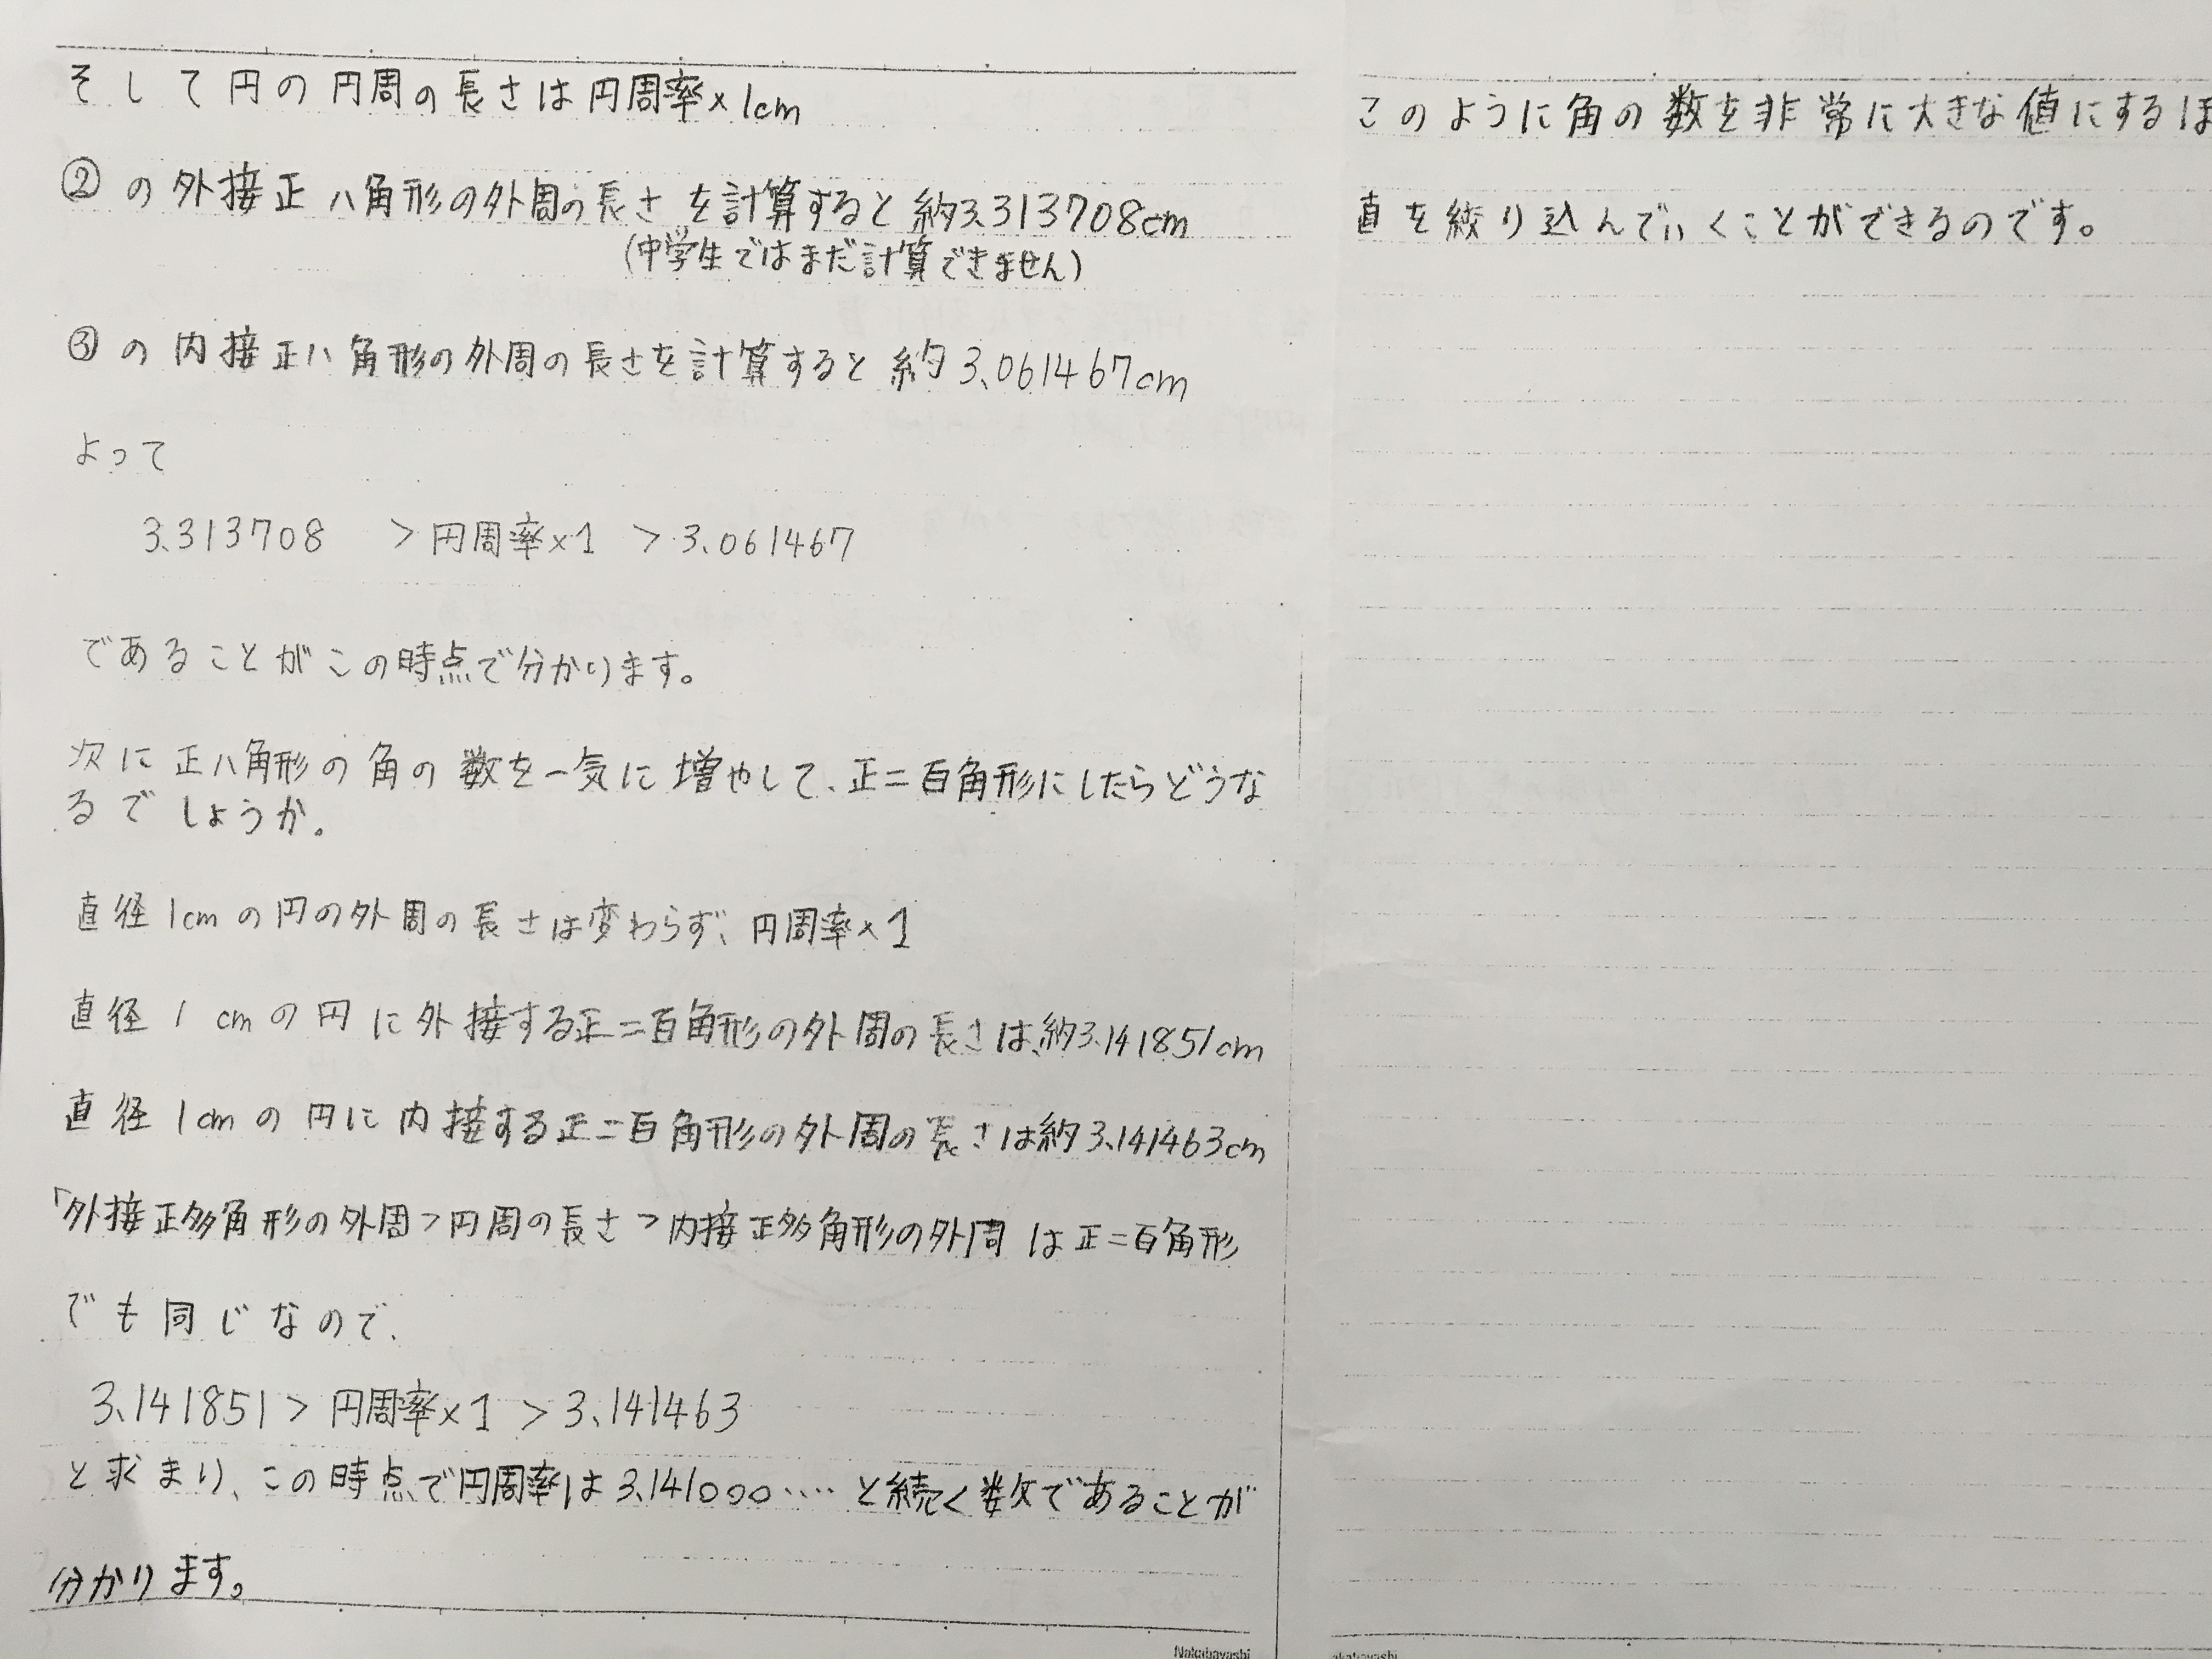 そして円の円周の長さは円周率×1cm
②の外接正八角形の外周の長さを計算すると約3.313708cm
(中学生ではまだ計算できません)
③の内接正八角形の外周の長さを計算すると約3.061467cm
よって
3.313708 > 円周率×1 > 3.061467
であることがこの時点で分かります。
次に正八角形の角の数を一気に増やして、正二百角形にしたらどうな
るでしょうか。
直径1cmの円の外周の長さは変わらず、円周率×1
直径1cmの円に外接する正二百角形の外周の長さは、約3.141851cm
直径1cmの円に内接する正二百角形の外周の長さは約3.141463cm
「外接正多角形の外周>円周の長さ>内接正多角形の外周は正二百角形
でも同じなので、
3.141851 > 円周率×1 > 3.141463
と求まり、この時点で円周率は3.141000‥‥と続く数であることが
分かります。
Nakabayashi
このように角の数を非常に大きな値にするほ
直を絞り込んでいくことができるのです。
akabayashi